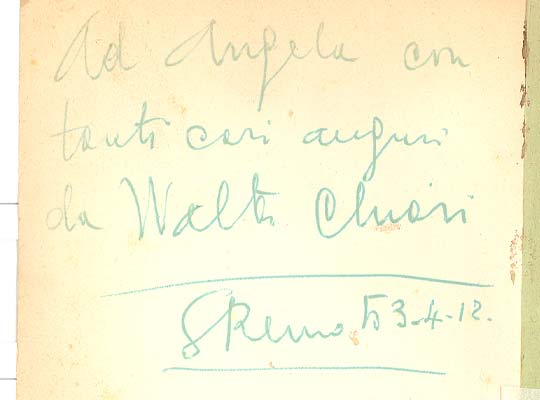 Ad Angela con
tanti cari auguri
da Walter Chiari
S Remo 53-4-12.